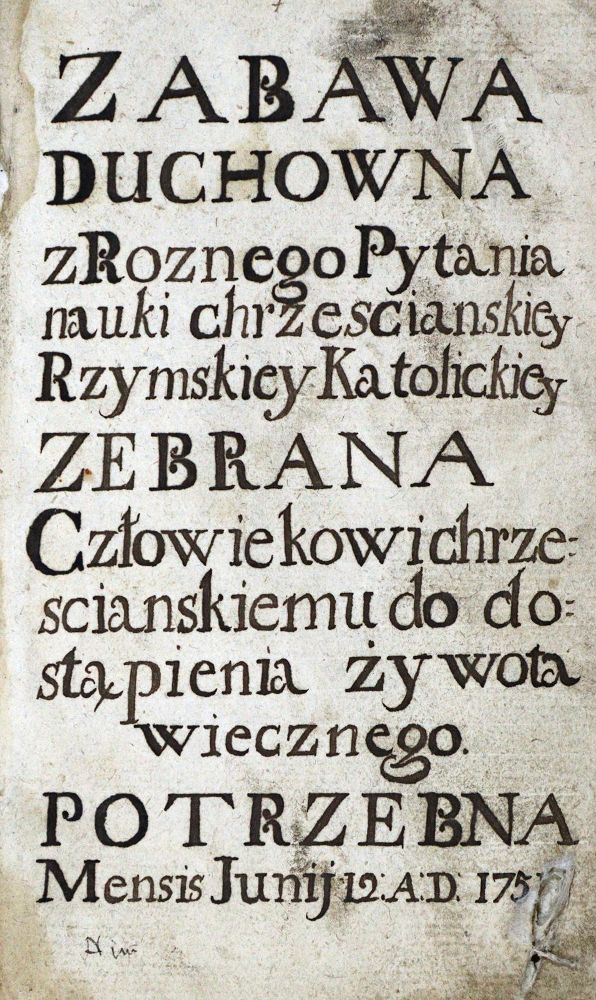 ZABAWA
DUCHOWNA
z Roznego Pytania
nauki chrzescianskiey
Rzymskiey Katolickiey
ZEBRANA
Człowiekowi chrze=
scianskiemu do do=
stąpienia żywota
wiecznego.
POTRZEBNA
Mensis Junij 12: A: D: 175